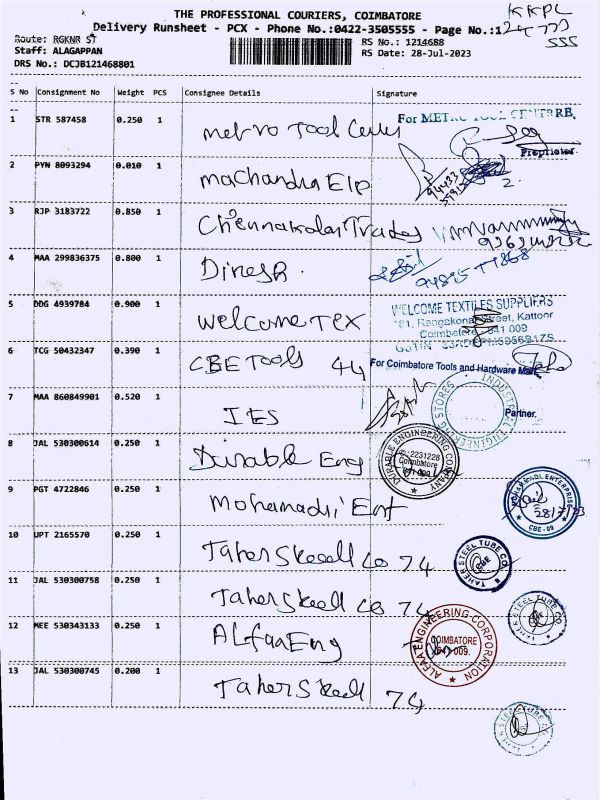 THE PROFESSIONAL COURIERS, COIMBATORE
Delivery Runsheet - PCX - Phone No.:0422-3505555 - Page No.:1
KKPL
Route: RGKNR ST
RS No.: 1214688
555
Staff: ALAGAPPAN
RS Date: 28-Jul-2023
DRS No.: DCJB121468801
S No Consignment No Weight PCS Consignee Details Signature
1 STR 587458 0.250 1 Metro Tool
For METRO TOOL CENTRE,
Proprietor
2 PYN 8093294 0.010 1
3 RJP 3183722 0.850 1
4 MAA 299836375 0.800 1 Dinesh
5 DDG 4939784 0.900 1 Welcome Tex
WELCOME TEXTILES SUPPLIERS
Rangakonar Street, Kattoor
Coimbatore 641 009
6 TCG 50432347 0.390 1 CBE Tools
For Coimbatore Tools and Hardware Mart,
7 MAA 860849901 0.520 1 IES
INDUSTRIAL ENGINEERING STORES
Partner.
8 JAL 530300614 0.250 1 Durable Eng
DURABLE ENGINEERING COMPANY
2231228
Coimbatore
641 009
9 PGT 4722846 0.250 1 Mohamadi Ent
MOHAMADI ENTERPRISE
28/7/23
CBE - 09
10 UPT 2165570 0.250 1 Taher Co 74
TAHER STEEL TUBE CO.
CBE
11 JAL 530300758 0.250 1 Taher Co 74
TAHER STEEL TUBE CO.
12 MEE 530343133 0.250 1 ALfaa Eng
ALFAA ENGINEERING CORPORATION
COIMBATORE
641 009.
13 JAL 530300745 0.200 1 Taher 74